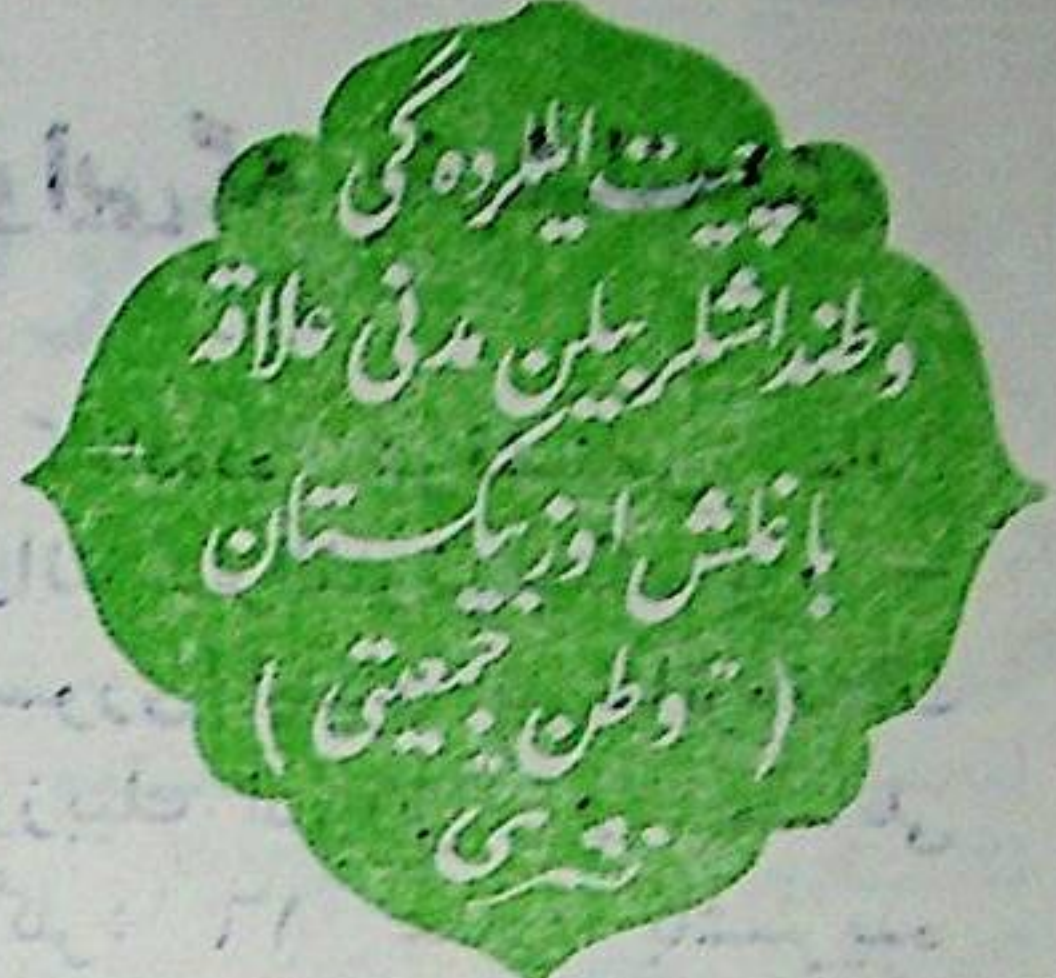 چیت ایللرده گی
وطنداشلر بیلن مدنی علاقه
باغلش اوزبیکستان
( وطن جمعیتی )
نشری